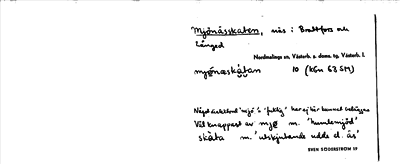 Mjönässkaten, näs i Brattfors och
Långed
Nordmalings sn, Västerb. s. doms. tg, Västerb. l.
mjønæskátan 10 (kfn 63 SM)
"mjö" "fuktig" har ej här kunnat
Väl knappast av mjø m. 'humlemjöd'
skáta m. 'utskjutande udde el. ås'
SVEN SÖDERSTRÖM 19